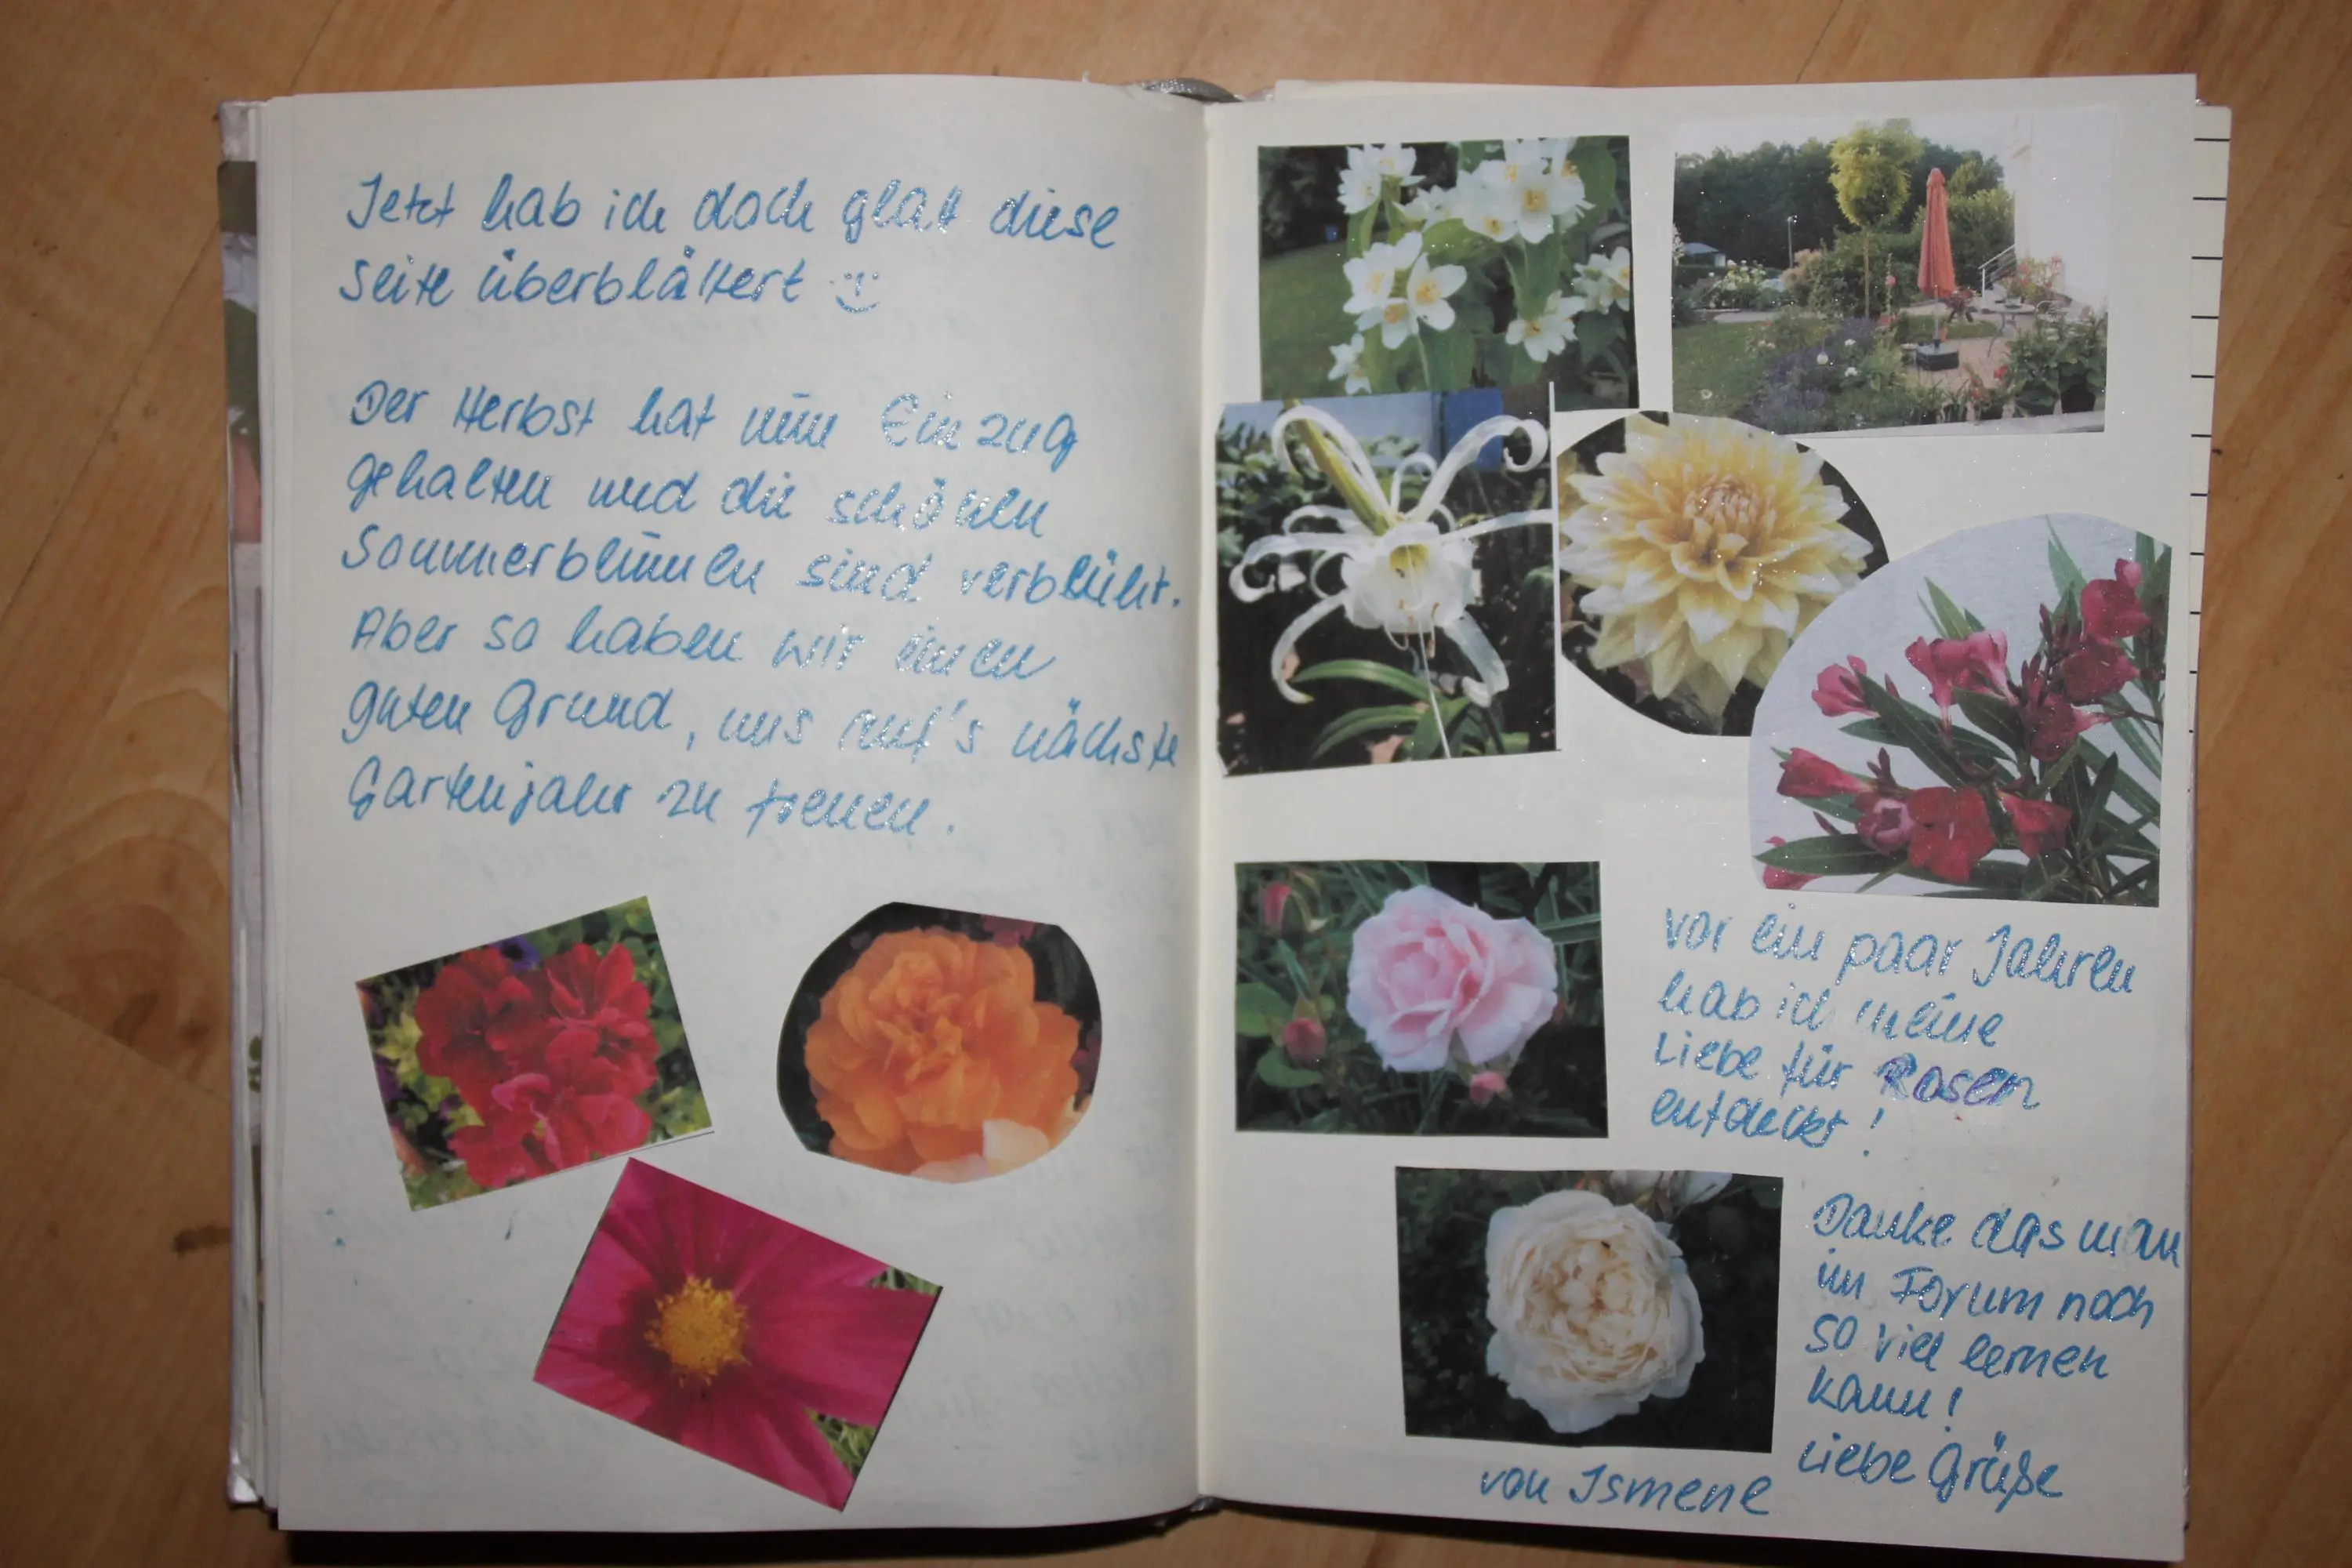 Jetzt hab ich doch glatt diese
Seite überblättert
Der Herbst hat nun Einzug
gehalten und die schönen
Sommerblumen sind verblüht.
Aber so haben wir einen
guten Grund, uns auf's nächste
Gartenjahr zu freuen.
vor ein paar Jahren
hab ich meine
Liebe für Rosen
entdeckt!
Danke das man
im Forum noch
so viel lernen
kann!
Liebe Grüße
von Ismene